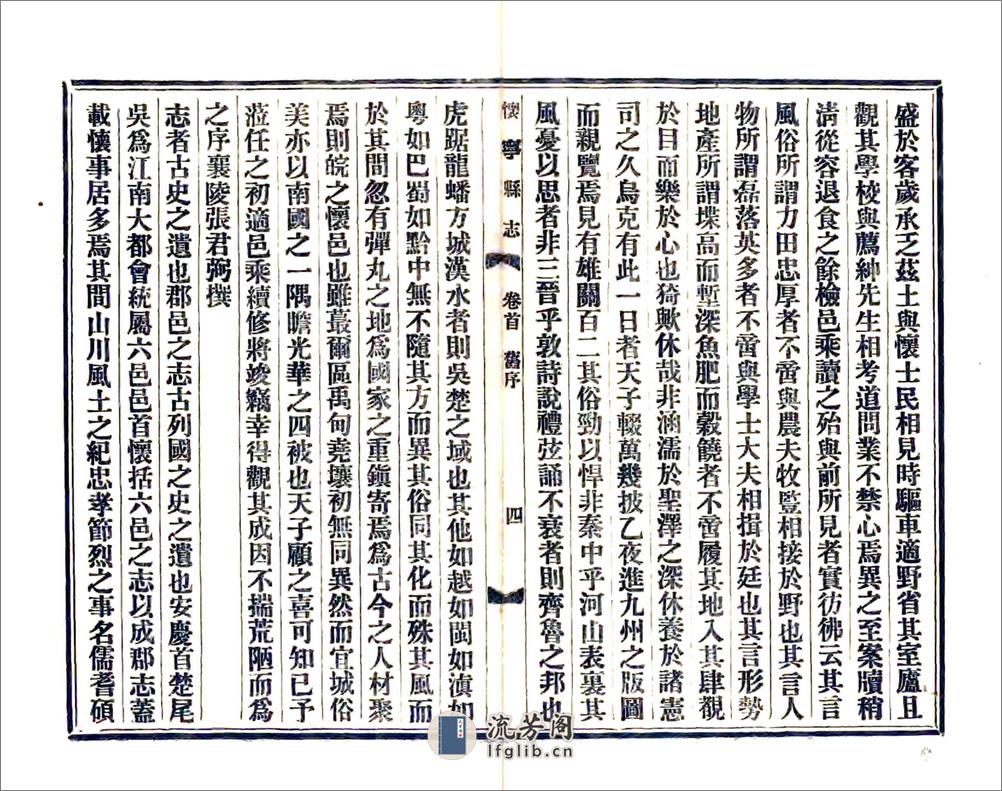 盛於客歲承乏茲土與懷士民相見時驅車適野省其室廬且
觀其學校與薦紳先生相考道問業不禁心焉異之至案牘稍
淸從容退食之餘檢邑乘讀之殆與前所見者實彷彿云其言
風俗所謂力田忠厚者不啻與農夫牧豎相接於野也其言人
物所謂磊落英多者不啻與學士大夫相揖於廷也其言形勢
地產所謂堞高而塹深魚肥而穀饒者不啻履其地入其肆覩
於目而樂於心也猗歟休哉非涵濡於聖澤之深休養於諸憲
司之久烏克有此一日者天子輟萬幾披乙夜進九州之版圖
而親覽焉見有雄關百二其俗勁以悍非秦中乎河山表裏其
風憂以思者非三晉乎敦詩說禮弦誦不衰者則齊魯之邦也
懷寧縣志 卷首 舊序 四
虎踞龍蟠方城漢水者則吳楚之域也其他如越如閩如滇如
粵如巴蜀如黔中無不隨其方而異其俗同其化而殊其風而
於其間忽有彈丸之地爲國家之重鎭寄焉爲古今之人材聚
焉則皖之懷邑也雖蕞爾區禹甸堯壤初無同異然而宜城俗
美亦以南國之一隅瞻光華之四被也天子顧之喜可知已予
蒞任之初適邑乘續修將竣竊幸得觀其成因不揣荒陋而爲
之序襄陵張君弼撰
志者古史之遺也郡邑之志古列國之史之遺也安慶首楚尾
吳爲江南大都會統屬六邑邑首懷括六邑之志以成郡志蓋
載懷事居多焉其間山川風土之紀忠孝節烈之事名儒耆碩
流芳阁
lfglib.cn